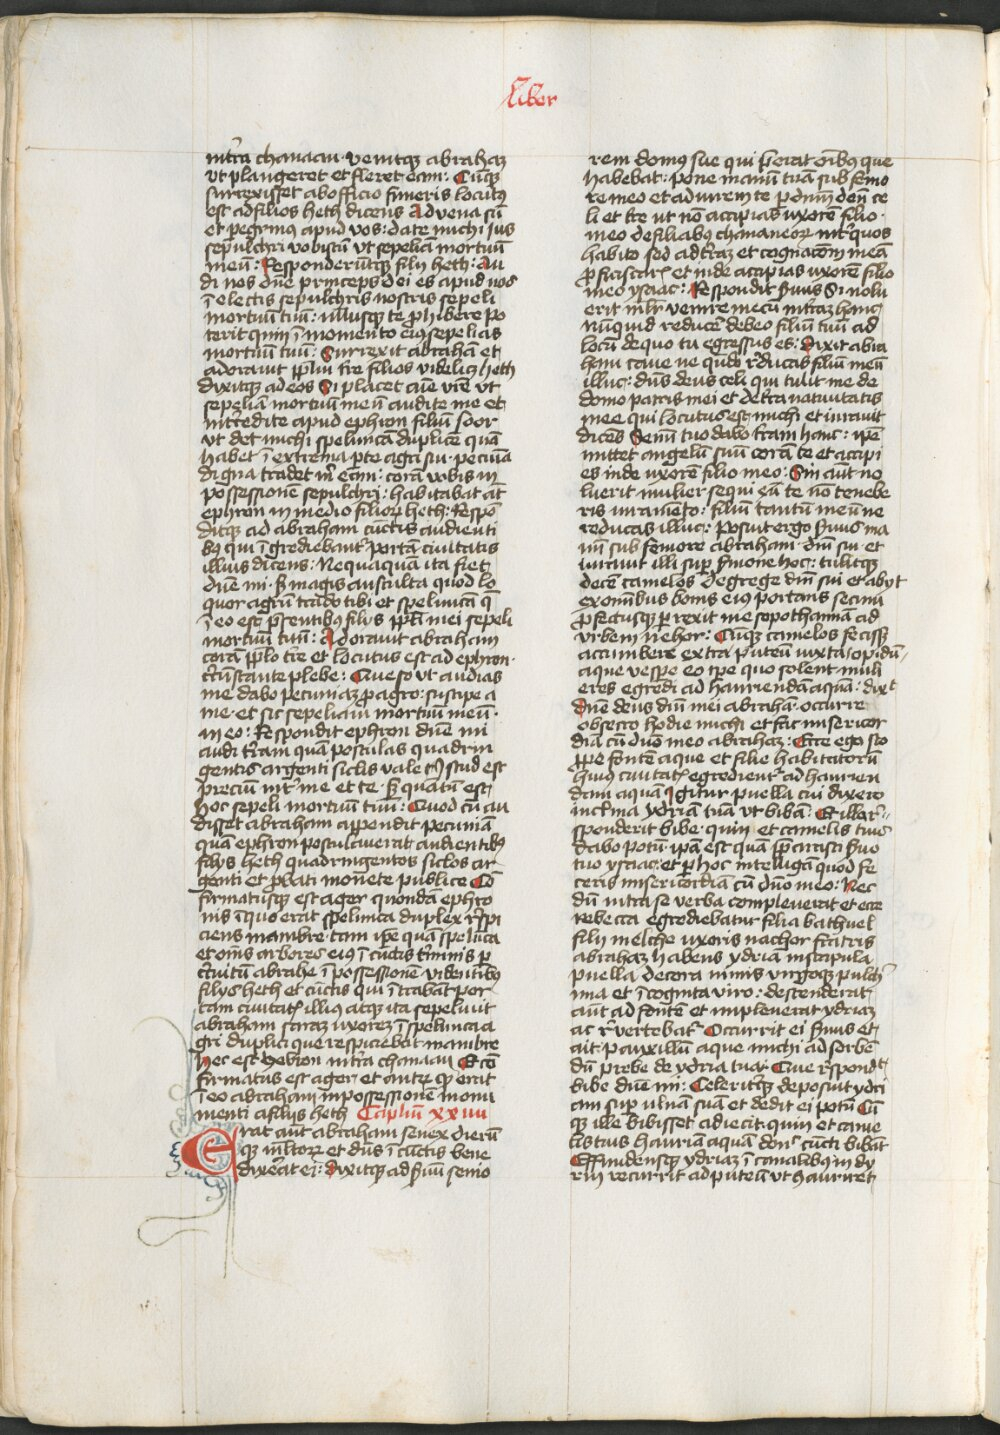 Liber
in t̄ra chanaan · venitqꝫ abrahaꝫ
vt plangeret et fleret eam : Cūqꝫ
surrexisset ab officio funeris locutꝰ
est ad filios heth dicens Advena sū
et pegrinꝰ apud vos : date michi ius
sepulchri vobiscū vt sepeliā mortuū
meū : Responderūtqꝫ filij heth : Au
di nos dn̄e princeps dei es apud nos
ī electis sepulchris nostris sepeli
mortuū tuū : nullusqꝫ te ꝓhibere po
terit quin ī momento eiꝰ sepelias
mortuū tuū : Surrexit abrahā et
adoravit pp̄lm tr̄e filios videlicꝫ heth
dixitqꝫ ad eos Si placet aīe vr̄e vt
sepeliā mortuū meū audite me et
intercedite apud ephron filiū soor
vt det michi speluncā duplicē quā
habet ī extrema pte agri sui · pecūia
digna tradet m̄ eam : corā vobis in
possessionē sepulchri : habitabat āt
ephron in medio filioꝝ heth : Respō
ditqꝫ ad abraham cūctis audienti
bꝫ qui ī grediebantᷣ portā civitatis
illius dicens : Nequaquā ita fiet
dn̄e mi · ſꝫ magis ausculta quod lo
quor agrū trado tibi et speluncā q̄
ī eo est p̄sentibꝰ filijs pp̄li mei sepeli
mortuū tuū : Adoravit abraham
corā pp̄lo tr̄e et locutus est ad ephron ·
cr̄cūstante plebe : Queso vt audias
me dabo pecuniaꝫ p agro : suscipe a
me · et sic sepeliam mortuū meū ·
in eo : Respondit ephron dn̄e mi
audi tr̄am quā postulas quadrin
gentis argenti siclis valet istud est
preciū int̄ me et te · ſꝫ quātū est
hoc sepeli mortuū tuū : Quod cū au
disset abraham appendit pecuniā
quā ephron postulaverat audientibꝰ
filijs heth quadringentos siclos ar
genti et ꝓbati monete publice Cō
firmatusqꝫ est ager quondā ephro
nis ī quo erat spelunca duplex r̄spi
ciens mambre · tam ip̄e quā spelūca
et om̄s arbores eiꝰ ī cūctis t̄minis p
circuitū abrahe ī possessionē · videntibꝰ
filijs heth et cūctis qui ī trabāt por
tam civitatꝭ illiꝰ atqꝫ ita sepelivit
abraham saraꝫ uxoreꝫ ī spelunca a
gri duplici que respiciebat mambre
hec est hebron in t̄ra chanaan Et cō
firmatus est ager et antrꝫ qꝫ erat
ī eo abraham in possessionē monu
menti a filijs heth Caplm̄ xxiiii
Erat aūt abraham senex dierū
qꝫ multoꝝ et dn̄s ī cūctis bene
dixerat ei : dixitqꝫ ad ẜuū senio
rem domꝰ sue qui p̄erat oībꝰ que
habebat : pone manū tuā sub femo
re meo et adiurem te p dn̄m deū ce
li et tr̄e ut nō accipias uxorē filio ·
meo de filiabꝰ chananeoꝝ int̄ quos
habito sed ad tr̄aꝫ et cognacōem meā
ꝓficiscarꝭ et inde accipias uxorē filio
meo ysaac : Respondit ẜuus Si nolu
erit mlr̄ venire mecū in t̄raꝫ hanc
nūquid reducē debeo filiū tuū ad
locū de quo tu egressus es : Dixit abra
ham cave ne qn̄do r̄ducas filiū meū
illuc : dn̄s deus celi qui tulit me de
domo patris mei et de t̄ra nativitatis
mee qui locutus est michi et iuravit
dicēs Semī tuo dabo tr̄am hanc : ip̄e
mittet angelū suū corā te et accipi
es inde uxorē filio meo : Sin aūt no
luerit mulier sequi eā te nō tenebe
ris iuramēto : filiū tantū meū ne
reducas illuc : Posuit ergo ẜuus ma
nū sub femore abraham · dn̄i sui · et
iuravit illi sup ẜmone hoc : tulitqꝫ
decē camelos de grege dn̄i sui et abijt
ex omnibus bonis eiꝰ portans secum
ꝓfectusqꝫ prexit mesopothamiā ad
urbem nehor : Cūqꝫ camelos fecissꝫ
accumbere extra puteū iuxta opidū
aque vespe eo tp̄e quo solent muli
eres egredi ad hauriendā aquā : dixᵗ
Dn̄e deus dn̄i mei abrahā · occurre
obsecro hodie michi et fac misericor
diā cū dn̄o meo abrahaꝫ : Ecce ego sto
ꝓpe fontē aque et filie habitatorū
huiꝰ civitatꝭ egredientᷣ ad haurien
dam aquā Igitur puella cui dixero
inclīa ydriā tuā vt bibā : Et illa r̄
sponderit bibe · quin et camelis tuis
dabo potū · ipā est quā p̄parasti ẜuo
tuo ysaac · et p hoc intelligā quod fe
ceris misericordiā cū dn̄o meo : Nec
dū intra se verba compleverat et ecce
rebecca egrediebatur filia bathuel
filij melche uxoris nachor fratris
abrahaꝫ habens ydriā in scapula
puella decora nimis virgoqꝫ pulch̄
rima et ī cognita viro : descenderat
aūt ad fontē et impleverat ydriaꝫ
ac r̄vertebatᷣ Occurrit ei ẜuus et
ait · pauxillū aque michi ad sorbē
dū prebe de ydria tua · Que r̄spondᵗ
bibe dn̄e mi : Celeriterqꝫ deposuit ydri
am sup ulnā suā et dedit ei potū Cū
qꝫ ille bibisset adiecit quin et came
lis tuis hauriā aquā donᷣ cūcti bibāt
Effundensqꝫ ydriaꝫ ī canalibꝰ in dy
rm̄ recurrit ad puteū vt hauriret